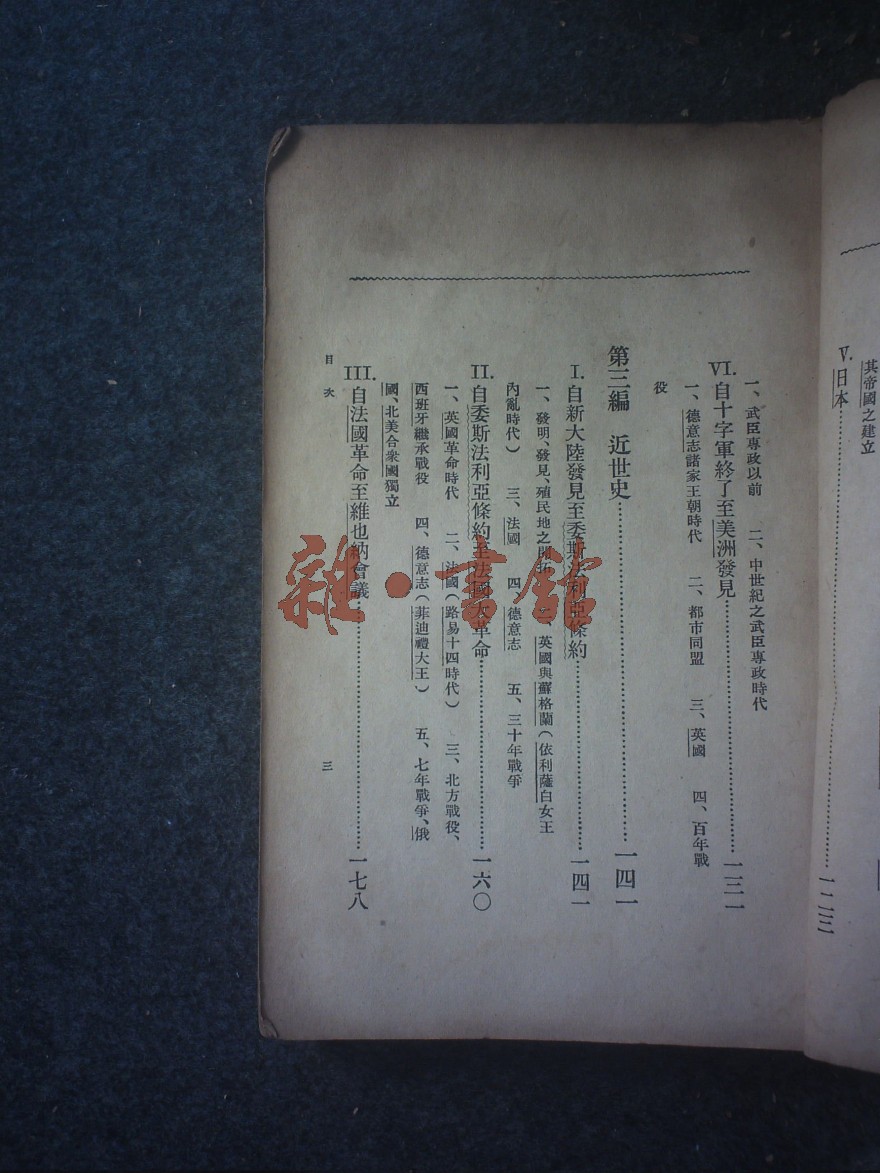 其帝國之建立
V. 日本……一二三
一、武臣專政以前 二、中世紀之武臣專政時代
VI. 自十字軍終了至美洲發見……一三一
一、德意志諸家王朝時代 二、都市同盟 三、英國 四、百年戰
役
第三編 近世史……一四一
I. 自新大陸發見至委斯法利亞條約……一四一
一、發明、發見、殖民地之開拓 英國與蘇格蘭(依利薩白女王
內亂時代) 三、法國 四、德意志 五、三十年戰爭
II. 自委斯法利亞條約至法國大革命……一六〇
一、英國革命時代 二、法國(路易十四時代) 三、北方戰役、
西班牙繼承戰役 四、德意志(菲迪禮大王) 五、七年戰爭、俄
國、北美合衆國獨立
III. 自法國革命至維也納會議……一七八
目次
三
雜·書館